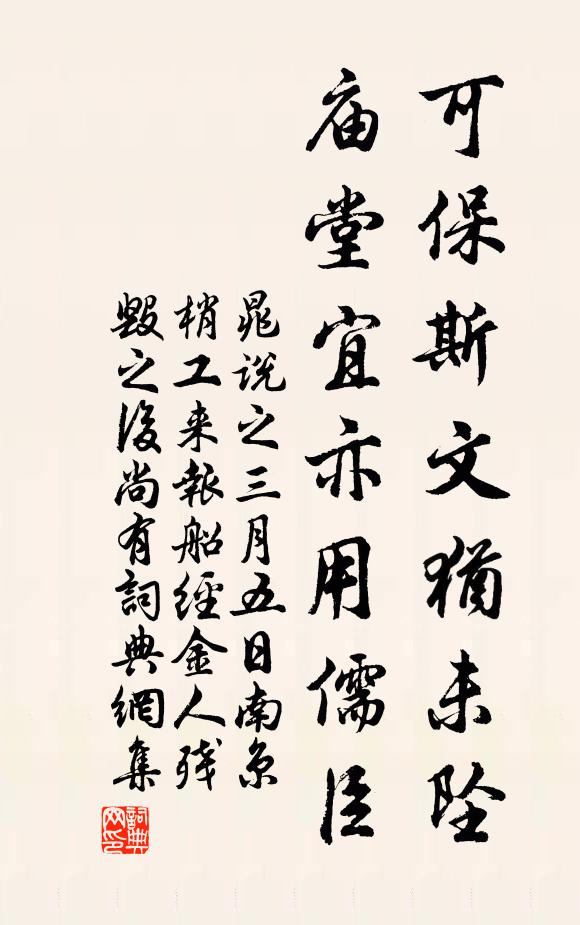 可保斯文猶未坠
庙堂宜亦用儒臣
晁说之三月五日南京
梢工来報船經金人残
毀之後尚有詞典網集
詞典網印